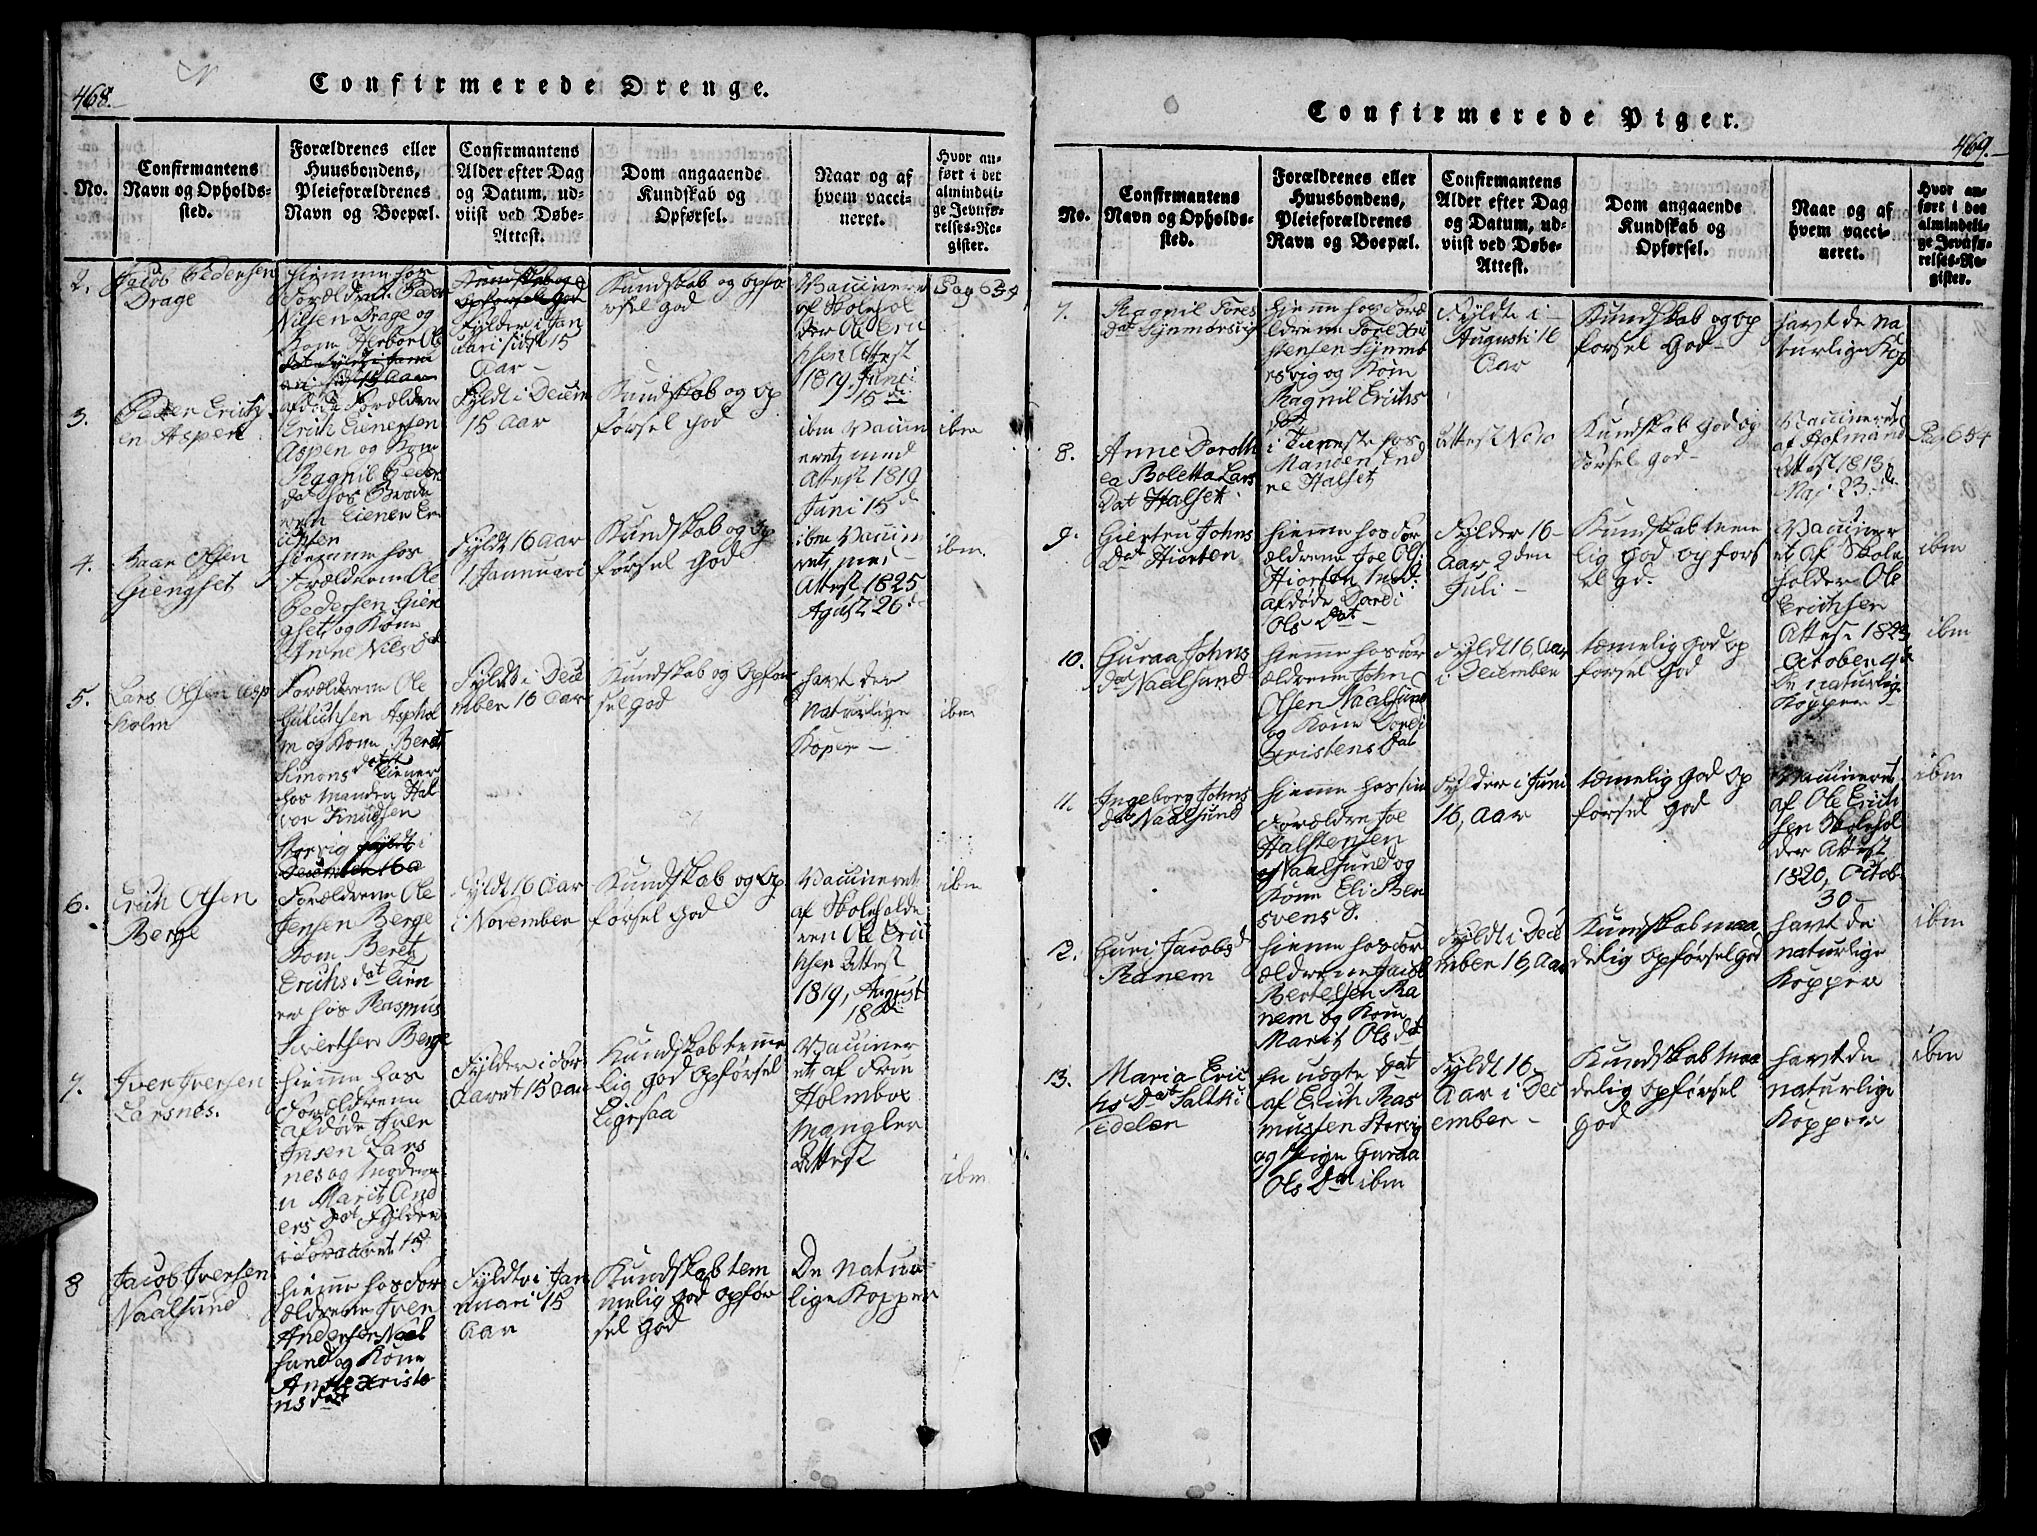 468.
Confirmerede Drenge.
No.
Confirmantens
Navn og Opholds-
sted.
Forældrenes eller
Huusbondens,
Pleieforældrenes
Navn og Boepæl.
Confirmantens
Alder efter Dag
og Datum, ud-
viist ved Døbe-
Attest.
Dom angaaende
Kundskab og
Opførsel.
Naar og af
hvem vacci-
neret.
Hvor an-
ført i det
almindeli-
ge Jevnfø-
relses-Re-
gister.
2.
Jacob Pedersen
Drage
hiemme hos
Forældrene Peder
Nilsen Drage og
Kone
Kundskab og
opførsel God
Fylder i Jan
uari sidst 15
Aar
Kundskab og opfø
rsel god
Vaccinered
af Skolehol
der Ole Eric
hsen Attest
1819, Juni
15 de
Pag 654
3.
Peder Erichs
en Aspen
afdøde Forældre
Erich Einersen
Aspen og Kone
Ragnil Peders
dat hos Brode
ren Eiener Er
ichsen
Fyldt i Decem
15 Aar
Kundskab og Op
førsel God
ibm Vaccin
eret, med
Attest 1819
Juni 15 d
ibm
4.
Olsen
Giengset
hiemme hos
Forældrene Ole
Pedersen Gien
gset og Kone
Anne Nils Dat
Fyldt 16 Aar
1 Januari
Kundskab og Op
førsel God
ibm Vaccin
eret, med
Attest 1825
Agust 26 d
ibm
5.
Lars Olsen Asp
holm
Forældrene Ole
Asphol
m og Kone Beret
Simons dat tiener
hos Manden Hal
vor Knudsen
Storvig fyldt i
December 16 A
Fyldt i Dece
mber 16 Aar
Kundskab og Opfør
sel god
havt der
Naturlige
Koper
ibm
6.
Erich Olsen
Berge
Forældrene Ole
Jensen Berge
Kone Beret
Erichs dat tien
er hos Rasmus
Sivertsen Berge
Fyldt 16 Aar
i November
Kundskab og Op
førsel God
Vaccineret
af Skoleholde
ren Ole Eric
hsen Attest
1819, August
18 de
ibm
7.
Iver Iversen
Larsnes.
hiemme hos
Forældrene
afdøde Iver
Jnsen Lars
nes og Modren
Marit And
ers Dat Fylder
i Foraaret 15
Fylder i For
aaret 15 Aar
Kundskab temme
lig God opførsel
Ligesaa
Vacciner
et af Frue
Holmboe
Mangler
Attest
ibm
8
Jacob Iversen
Naalsund
hiemme hos For
ældrene Iver
Andersen Naal
sund og Kone
Anne Christe
ns dat
Fyldte i Jan
nuari 15
Aar
Kundskab tem
melig God opfør
sel God
De Natur
lige Kopper
Confirmerede Piger.
469.
No.
Confirmantens
Navn og Opholds-
sted.
Forældrenes eller
Huusbondens,
Pleieforældrenes
Navn og Boepæl.
Confirmantens
Alder efter Dag
og Datum, ud-
viist ved Døbe-
Attest.
Dom angaaende
Kundskab og
Opførsel.
Naar og af
hvem vacci-
neret.
Hvor an-
ført i det
almindeli-
ge Jevnfø-
relses-Re-
gister.
7.
Ragnil Tores
dat Synmørsvig
hiemme hos Foræ
ldrene Tore Kri
stensen Synmø
rsvig og Kone
Ragnil Erichs
dat
Fyldte i
Augusti 16
Aar
Kundskab og op
førsel God
havt de na
turlige Kop
8.
Anne Doroth
ea Boletta Lars
Dat Halset
i tieneste hos
Manden End
re Halset
Attest No 10
Kundskab God og
førsel god
Vaccineret
af Hofmand
Attest 1813
Maj 23 d
Pag 654
9.
Giertru Johns
Dat Hiorten
hiemme hos For
ældrene Joe Ols
Hiorten Mod.
afdøde Dordi
Ols Dat
Fylder 16
Aar 2 den
Juli
Kundskab teme
lig God og førs
el gd.
Vacciner
et af Skole
holder Ole
Erichsen
Attest 1823
October 4 d
ibm
10.
Guraa Johns
dat Naalsund
hiemme hos For
ældrene John
Olsen Naalsund
og Kone Dordi
Kristens Dat
Fyldt 16 Aar
i December
temelig God op
førsel God
De naturlig
Kopper
ibm
11.
Ingeborg Johns
dat Naalsund
hiemme hos sin
Forældre Joe
Halstensen
Naalsund og
Kone Eli Ben
svens d.
Fylder i Juni
16, Aar
temelig God op
førsel God
Vaccineret
af Ole Erich
sen Skolehol
der Attest
1820, Octob
30
ibm
12.
Guri Jacobs d
Ranem
hiemme hos For
ældrene Jacob
Bertelsen Ra
nem og Kone
Marit Ols dat
Fyldt i Dece
mber 16, Aar
Kundskab maa
delig opførsel god
havt de
naturlige
Kopper
ibm
13.
Maria Eric
hs Dat
En uægte Dat
af Erich Ras
mussen Storvig
og Pige Guraa
Ols Dat ibm
Fyldt 16
Aar i Dec
ember
Kundskab maa
delig opførsel
God
havt de
naturlige
Kopper
ibm